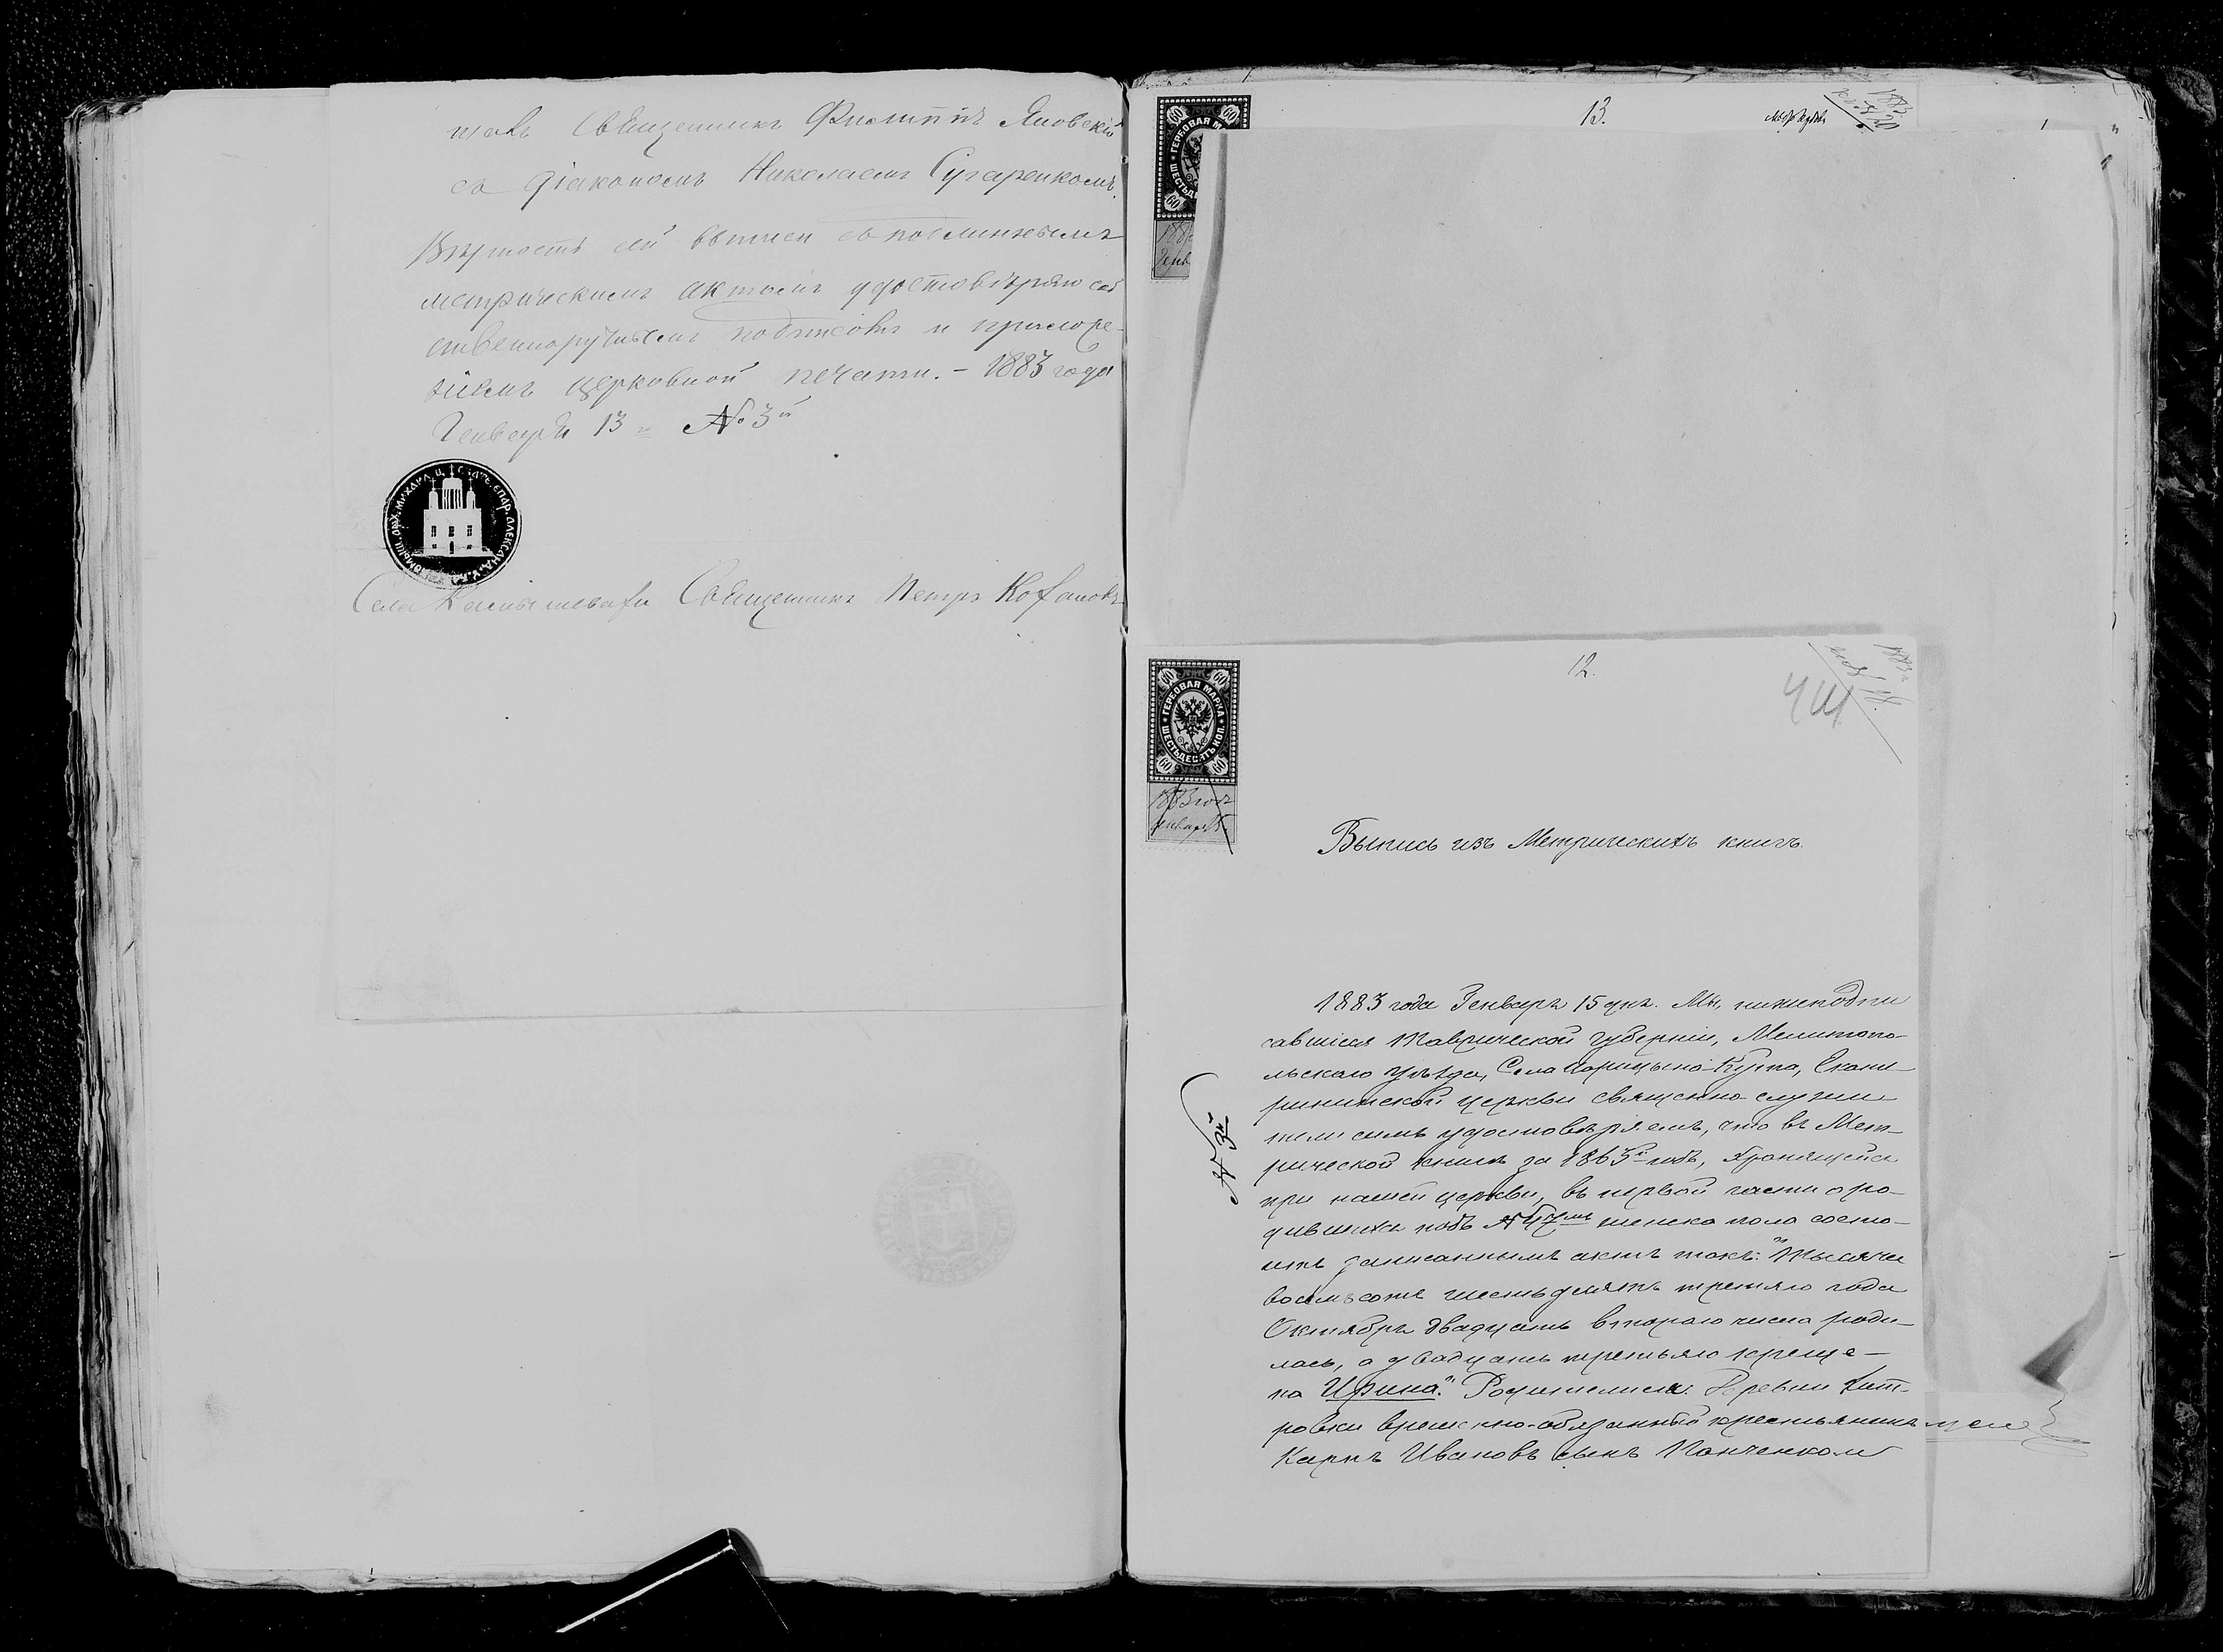 щалъ Священникъ Филиппъ Яновскій
съ діакономъ Николаемъ
Вѣрность сей выписи съ подлиннымъ
метрическимъ актомъ удостовѣряю соб
ственноручнымъ подписомъ и приложе-
ніемъ церковной печати. – 1883 года
Генваря 13 № 3й
Села Священникъ Петръ
13.
60 60
ГЕРБОВАЯ
60
12.
1883
60 60
ГЕРБОВАЯ МАРКА
ШЕСТЬДЕСЯТЪ КОП.
60 60
1883 годъ
Января 15
Выпись изъ Метрическихъ книгъ.
1883 года Генваря 15 дня. Мы, нижеподпи
савшіеся Таврической губерніи, Мелитопо-
льскаго уѣзда, Села Царицына-Кута, Екате
рининской церкви священно служи
тели симъ удостовѣряемъ, что въ Мет-
рической книгѣ за 1863й годъ, хранящейся
при нашей церкви, въ первой части о ро-
дившихся подъ № 47мъ женска пола состо-
итъ записаннымъ актъ такъ: "Тысяча
восемьсотъ шестьдесятъ третяго года
Октября двадцать втораго числа роди-
лась, а двадцать третьяго креще-
на Ирина." Родители: Деревни
ровки временно-обязанный крестьянинъ
Карпъ Ивановъ сынъ Панченком
№ 9й